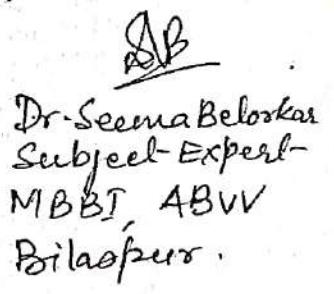 SB
Dr. Seema Belorkar
Subject Expert
MBBT, ABVV
Bilaspur.